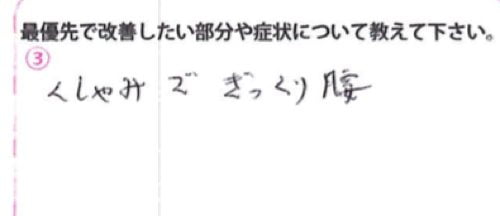 最優先で改善したい部分や症状について教えて下さい。
③
くしゃみで ぎっくり腰